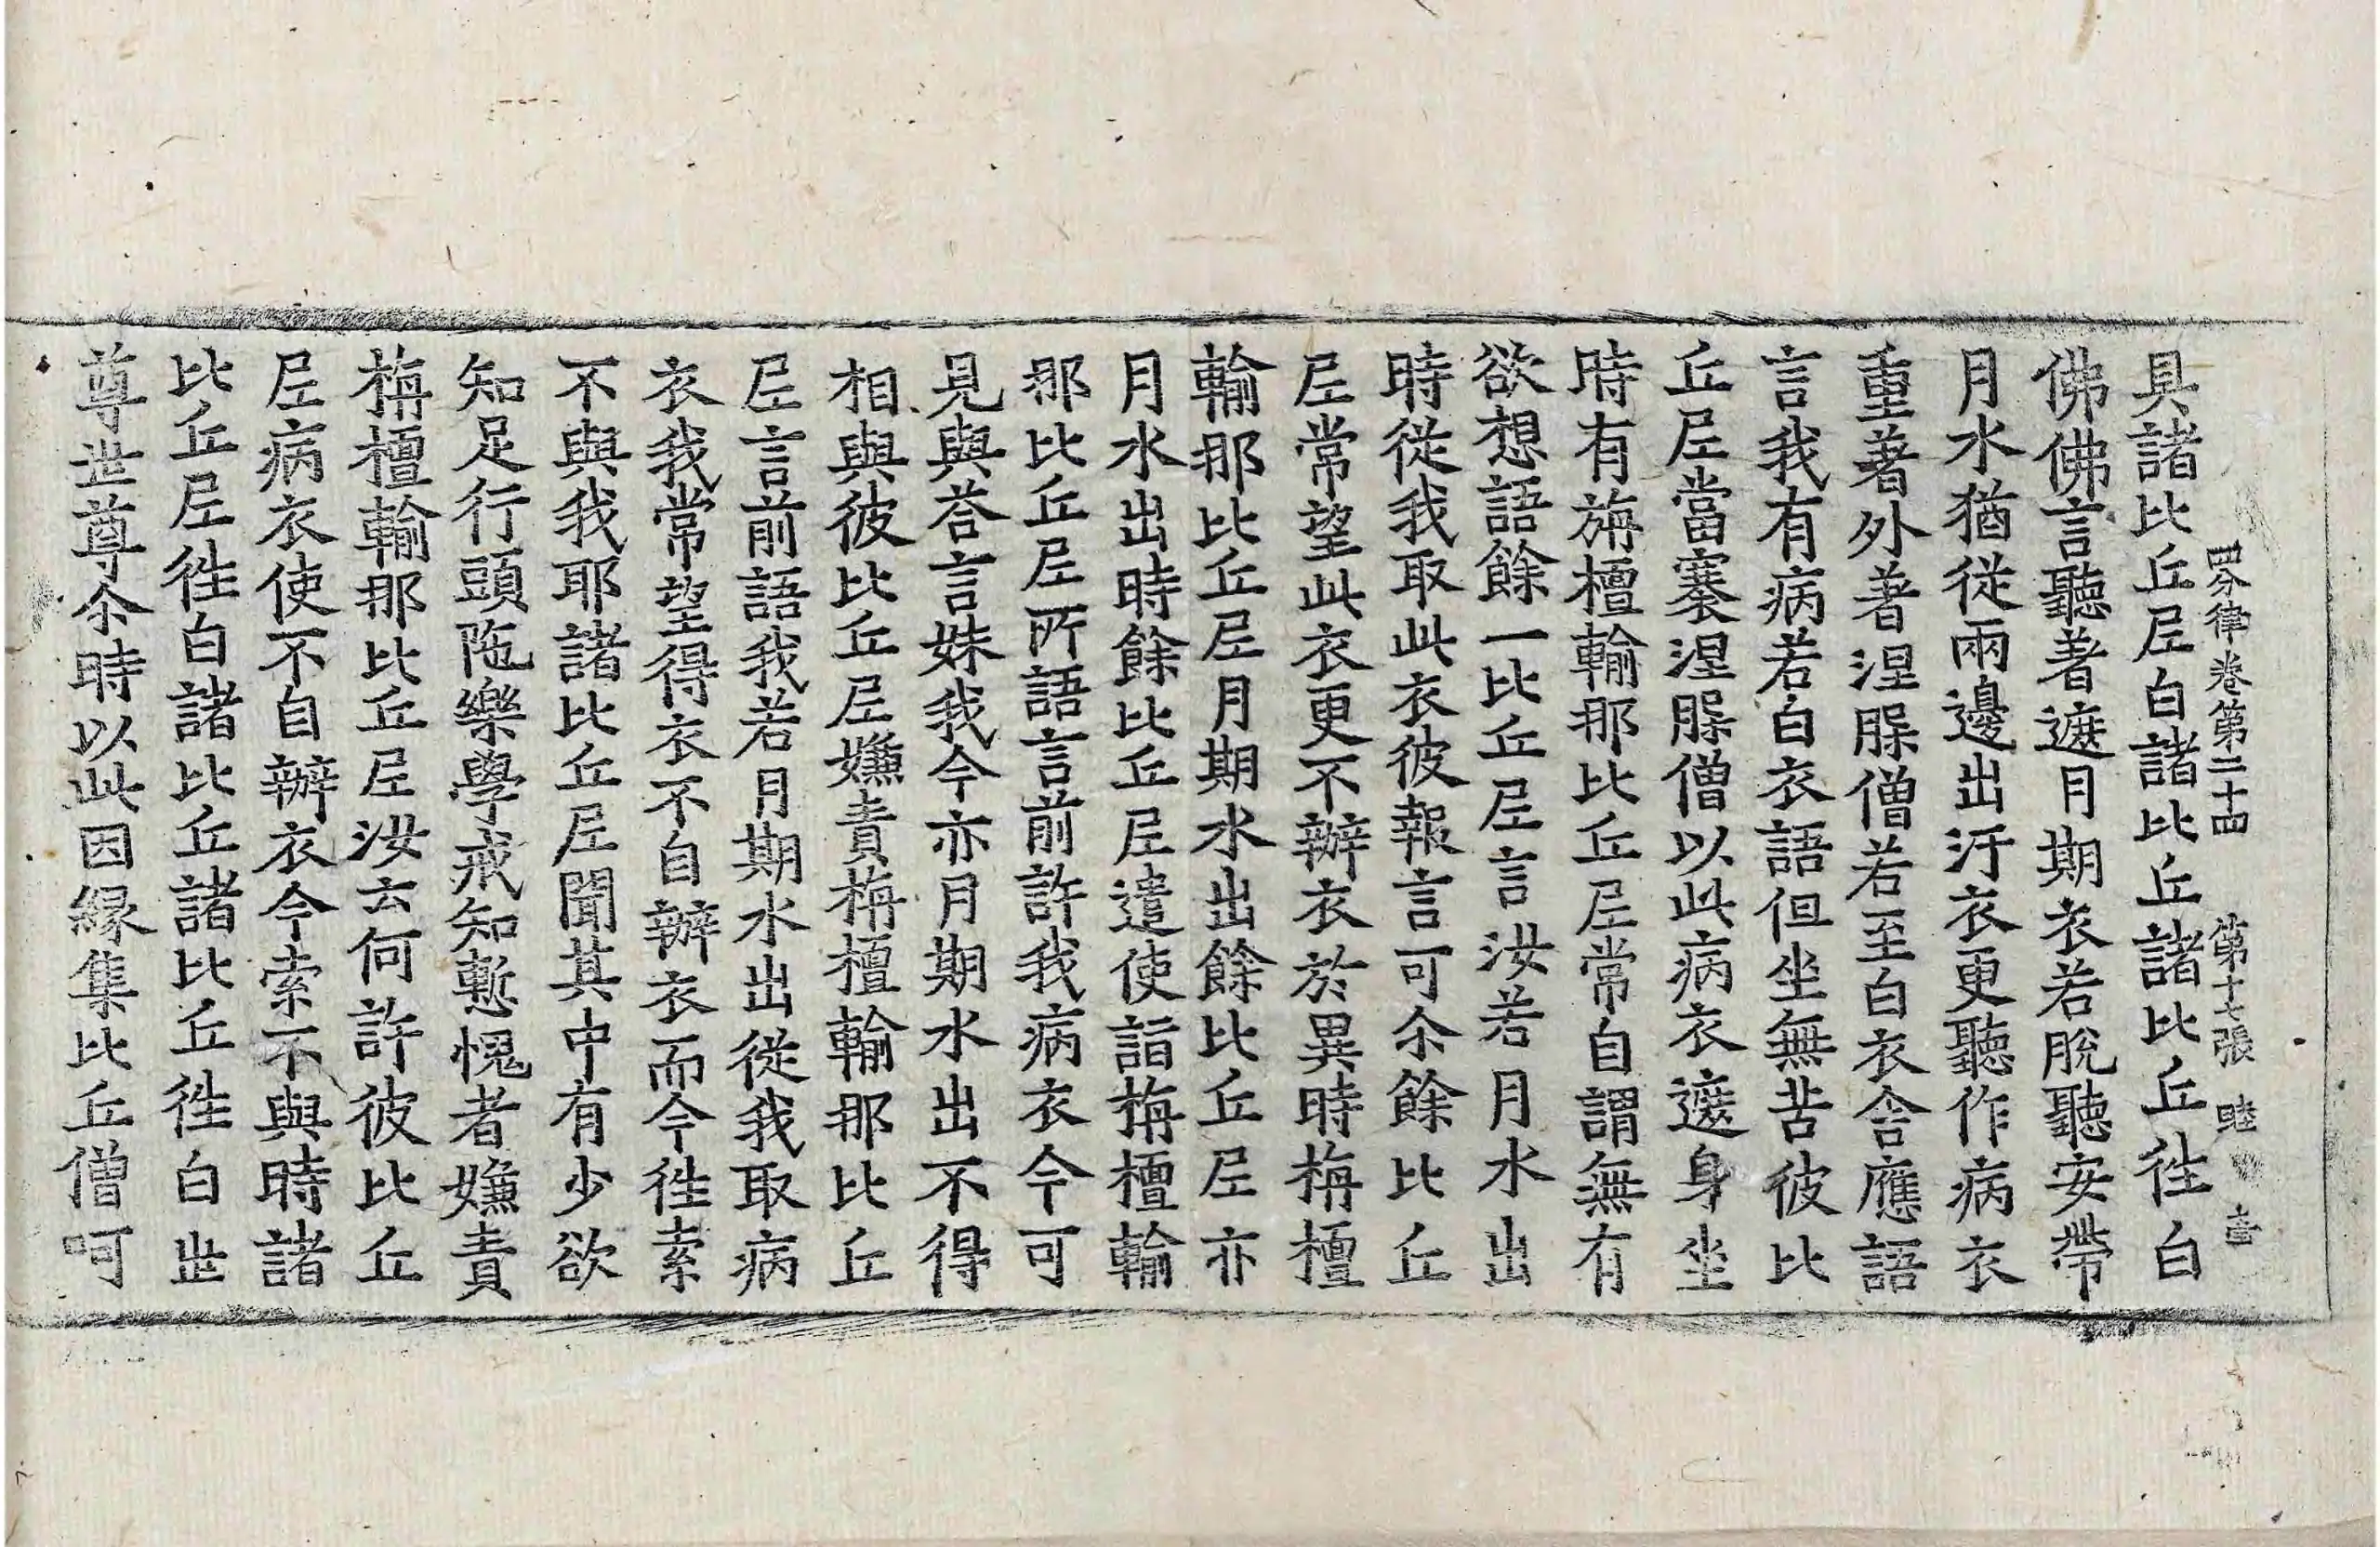 四分律卷第二十四　第十七張　睦
具諸比丘尼白諸比丘諸比丘徃白
佛佛言聽著遮月期衣若脫聽安帶
月水猶從兩邊出汙衣更聽作病衣
重著外著涅腂僧若至白衣舍應語
言我有病若白衣語但坐無苦彼比
丘尼當褰涅腂僧以此病衣遮身坐
時有旃檀輸那比丘尼常自謂無有
欲想語餘一比丘尼言汝若月水出
時從我取此衣彼報言可尒餘比丘
尼常望此衣更不辦衣於異時栴檀
輸那比丘尼月期水出餘比丘尼亦
月水出時餘比丘尼遣使詣栴檀輸
那比丘尼所語言前許我病衣今可
見與荅言姝我今亦月期水出不得
相與彼比丘尼嫌責栴檀輸那比丘
尼言前語我若月期水出從我取病
衣我常望得衣不自辦衣而今徃索
不與我耶諸比丘尼聞其中有少欲
知足行頭陁樂學戒知慙愧者嫌責
栴檀輸那比丘尼汝云何許彼比丘
尼病衣使不自辦衣今索不與時諸
比丘尼徃白諸比丘諸比丘徃白丗
尊丗尊尒時以此因緣集比丘僧呵